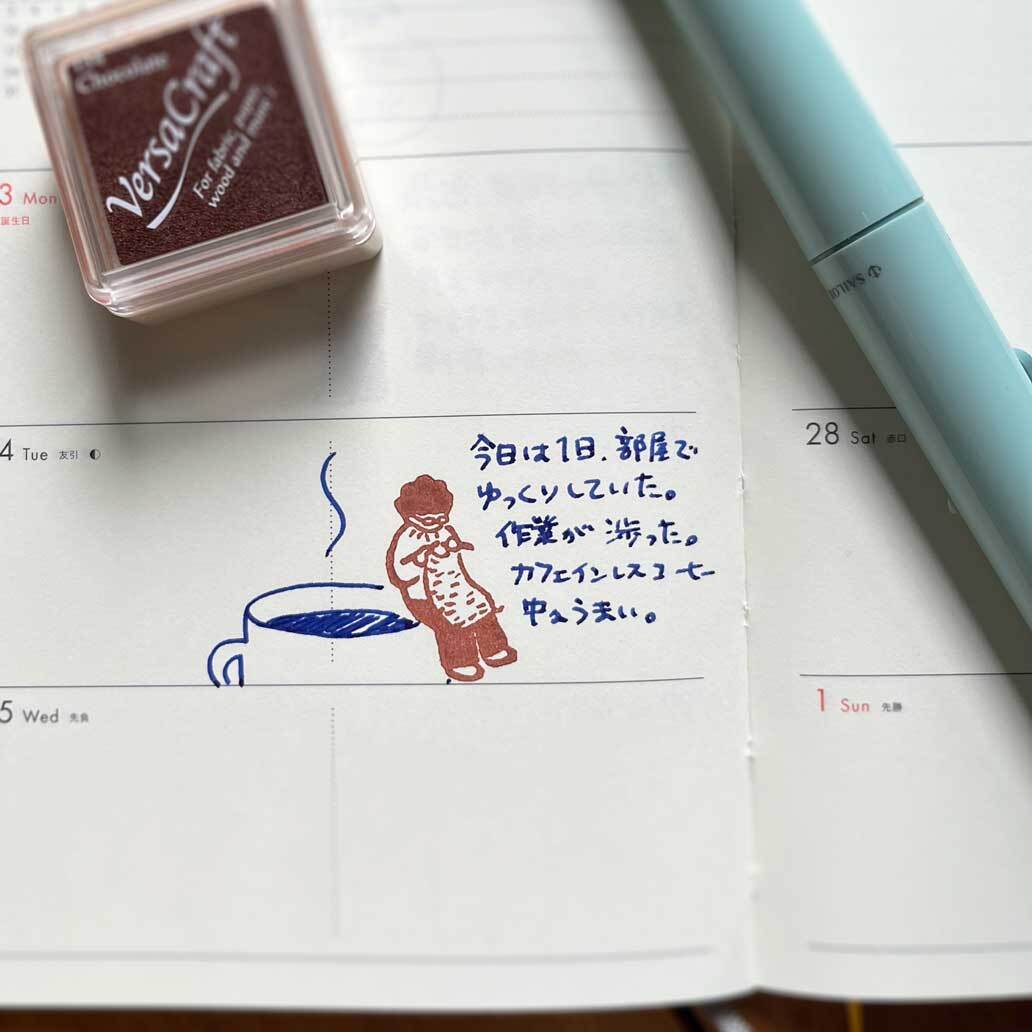 Chocolate
VersaCraft
For fabric, paper,
wood and more!
SAILO
3 Mon
誕生日
4 Tue 友引
今日は1日、部屋で
ゆっくりしていた。
作業が渉った。
カフェインレスコーヒー
中々うまい。
28 Sat 赤口
5 Wed 先負
1 Sun 先勝